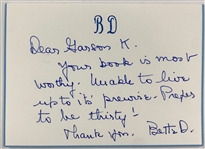 BD
Dear Garson K.
Your book is most
worthy. Unable to live
up to it's premise. Prefer
to be thirsty!
Thank you. Bette D.